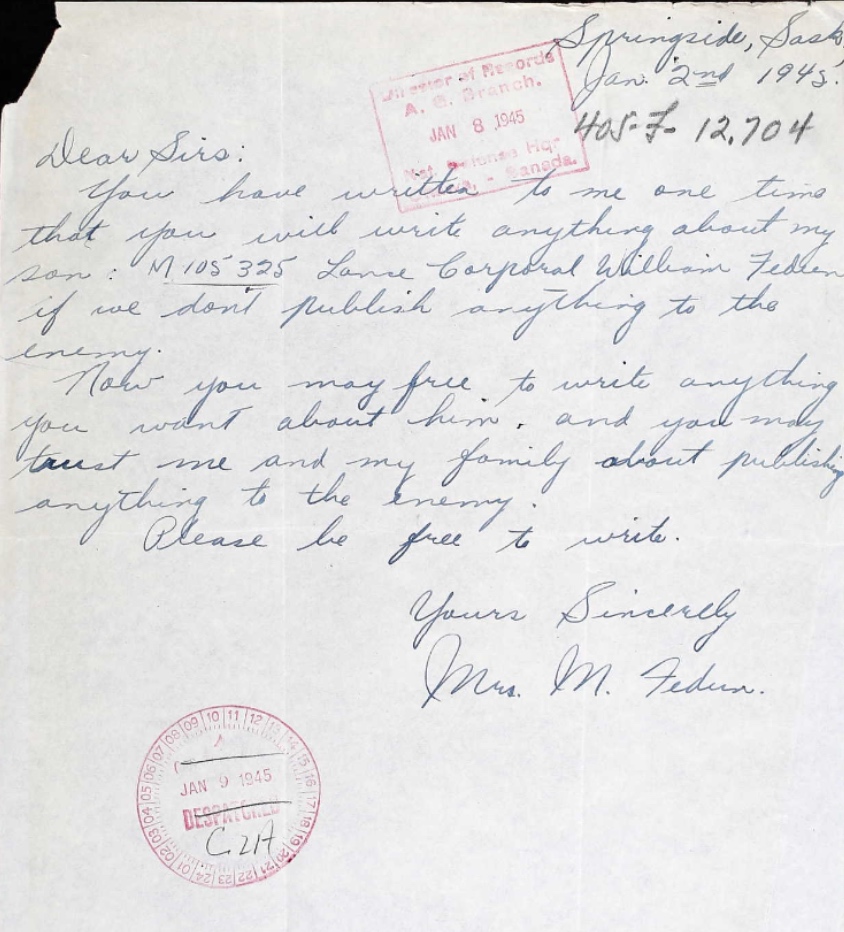 Springside, Sask,
Jan. 2nd 1945.
Director of Records
A. G. Branch.
JAN 8 1945
Nat. Defense Hqr
- Canada.
405-F- 12,704
Dear Sirs:
You have written to me one time
that you will write anything about my
son: M 105 325 Lance Corporal William Fedun
if we don't publish anything to the
enemy.
Now you may free to write anything
you want about him. and you may
trust me and my family about publishing
anything to the enemy.
Please be free to write.
Yours Sincerely
Mrs. M. Fedun.
01 02 03 04 05 06 07 08 09 10 11 12 13 14 15 16 17 18 19 20 21 22 23 24
JAN 9 1945
DESPATCHED
C.21A